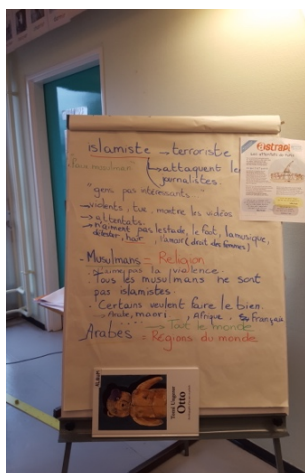 islamiste → terroriste
"Faux musulman"
attaquent les
journalistes.
"gens pas intéressants"
→ violents, tue, montre les vidéos
→ attentats.
n'aiment pas le stade, le foot, la musique,
détester, haïr, (droit des femmes)
- Musulmans = Religion
pas la violence.
Tous les musulmans ne sont
pas islamistes.
Certains veulent faire le bien.
Arabe, maori, Afrique, Français
→ Tout le monde
Arabes = Régions du monde
astrapi
Tomi Ungerer
Otto